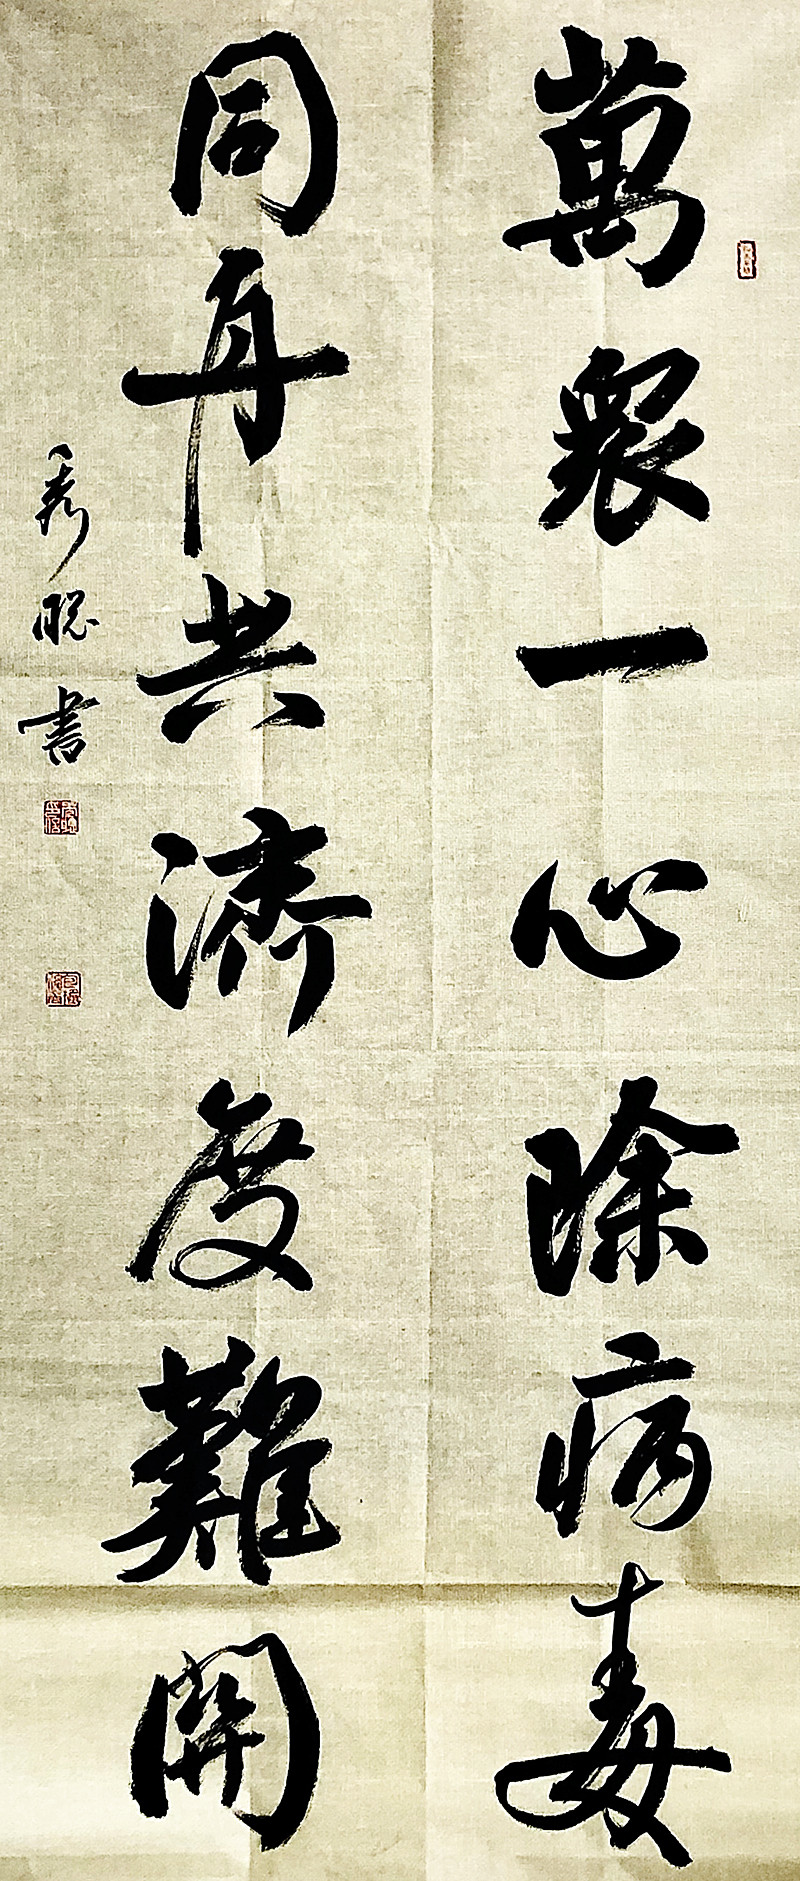 萬衆一心除病毒
同舟共濟度難開
秀聪書